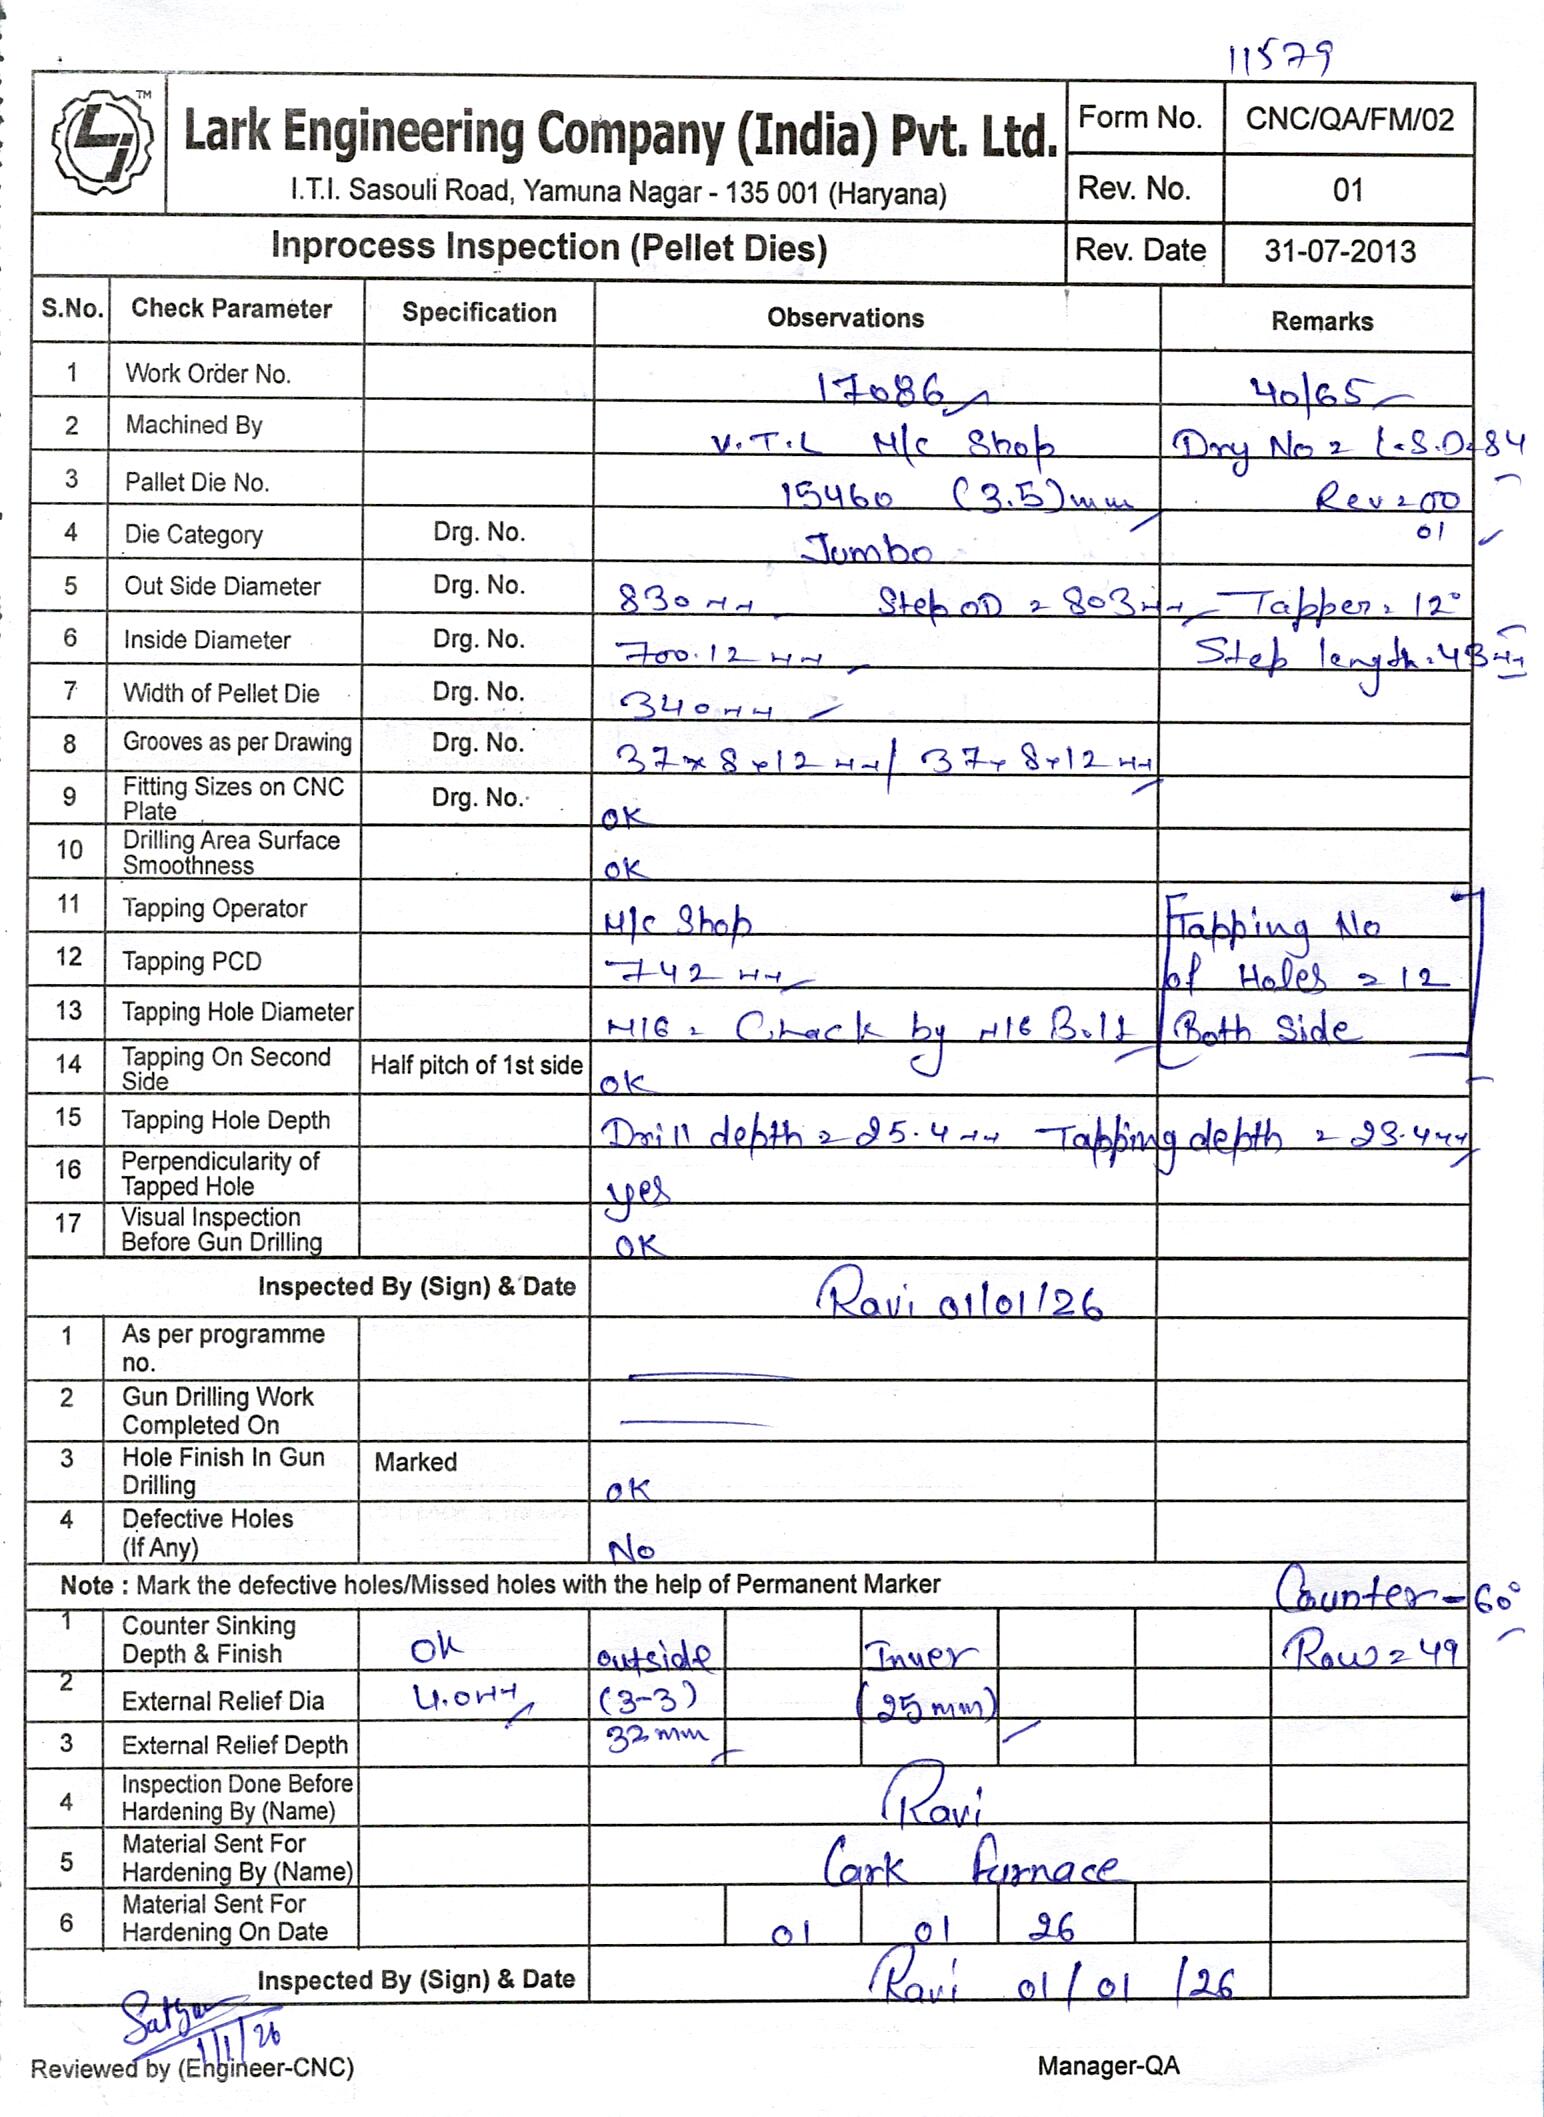 11579
TM
Lark Engineering Company (India) Pvt. Ltd.
I.T.I. Sasouli Road, Yamuna Nagar - 135 001 (Haryana)
Form No. CNC/QA/FM/02
Rev. No. 01
Inprocess Inspection (Pellet Dies) Rev. Date 31-07-2013
S.No. Check Parameter Specification Observations Remarks
1 Work Order No. 17086 40/65
2 Machined By V.T.L M/c Shop Drg No = L.S.D-84
3 Pallet Die No. 15460 (3.5)mm Rev = 00
4 Die Category Drg. No. Jumbo 01
5 Out Side Diameter Drg. No. 830mm Step OD = 803mm Tapper = 12°
6 Inside Diameter Drg. No. 700.12mm Step length = 43mm
7 Width of Pellet Die Drg. No. 340mm
8 Grooves as per Drawing Drg. No. 37x8x12mm/ 37x8x12mm
9 Fitting Sizes on CNC Plate Drg. No. OK
10 Drilling Area Surface Smoothness OK
11 Tapping Operator M/c Shop Tapping No
12 Tapping PCD 742mm of Holes = 12
13 Tapping Hole Diameter M16 = Chack by M16 Bolt Both Side
14 Tapping On Second Side Half pitch of 1st side OK
15 Tapping Hole Depth Drill depth = 25.4mm Tapping depth = 23.4mm
16 Perpendicularity of Tapped Hole yes
17 Visual Inspection Before Gun Drilling OK
Inspected By (Sign) & Date Ravi 01/01/26
1 As per programme no.
2 Gun Drilling Work Completed On
3 Hole Finish In Gun Drilling Marked OK
4 Defective Holes (If Any) No
Note : Mark the defective holes/Missed holes with the help of Permanent Marker Counter - 60°
1 Counter Sinking Depth & Finish Ok outside Inner Row = 49
2 External Relief Dia 4.0mm (3-3) (25mm)
3 External Relief Depth 32mm
4 Inspection Done Before Hardening By (Name) Ravi
5 Material Sent For Hardening By (Name) Lark Furnace
6 Material Sent For Hardening On Date 01 01 26
Inspected By (Sign) & Date Ravi 01/01/26
Satyam
1/1/26
Reviewed by (Engineer-CNC) Manager-QA